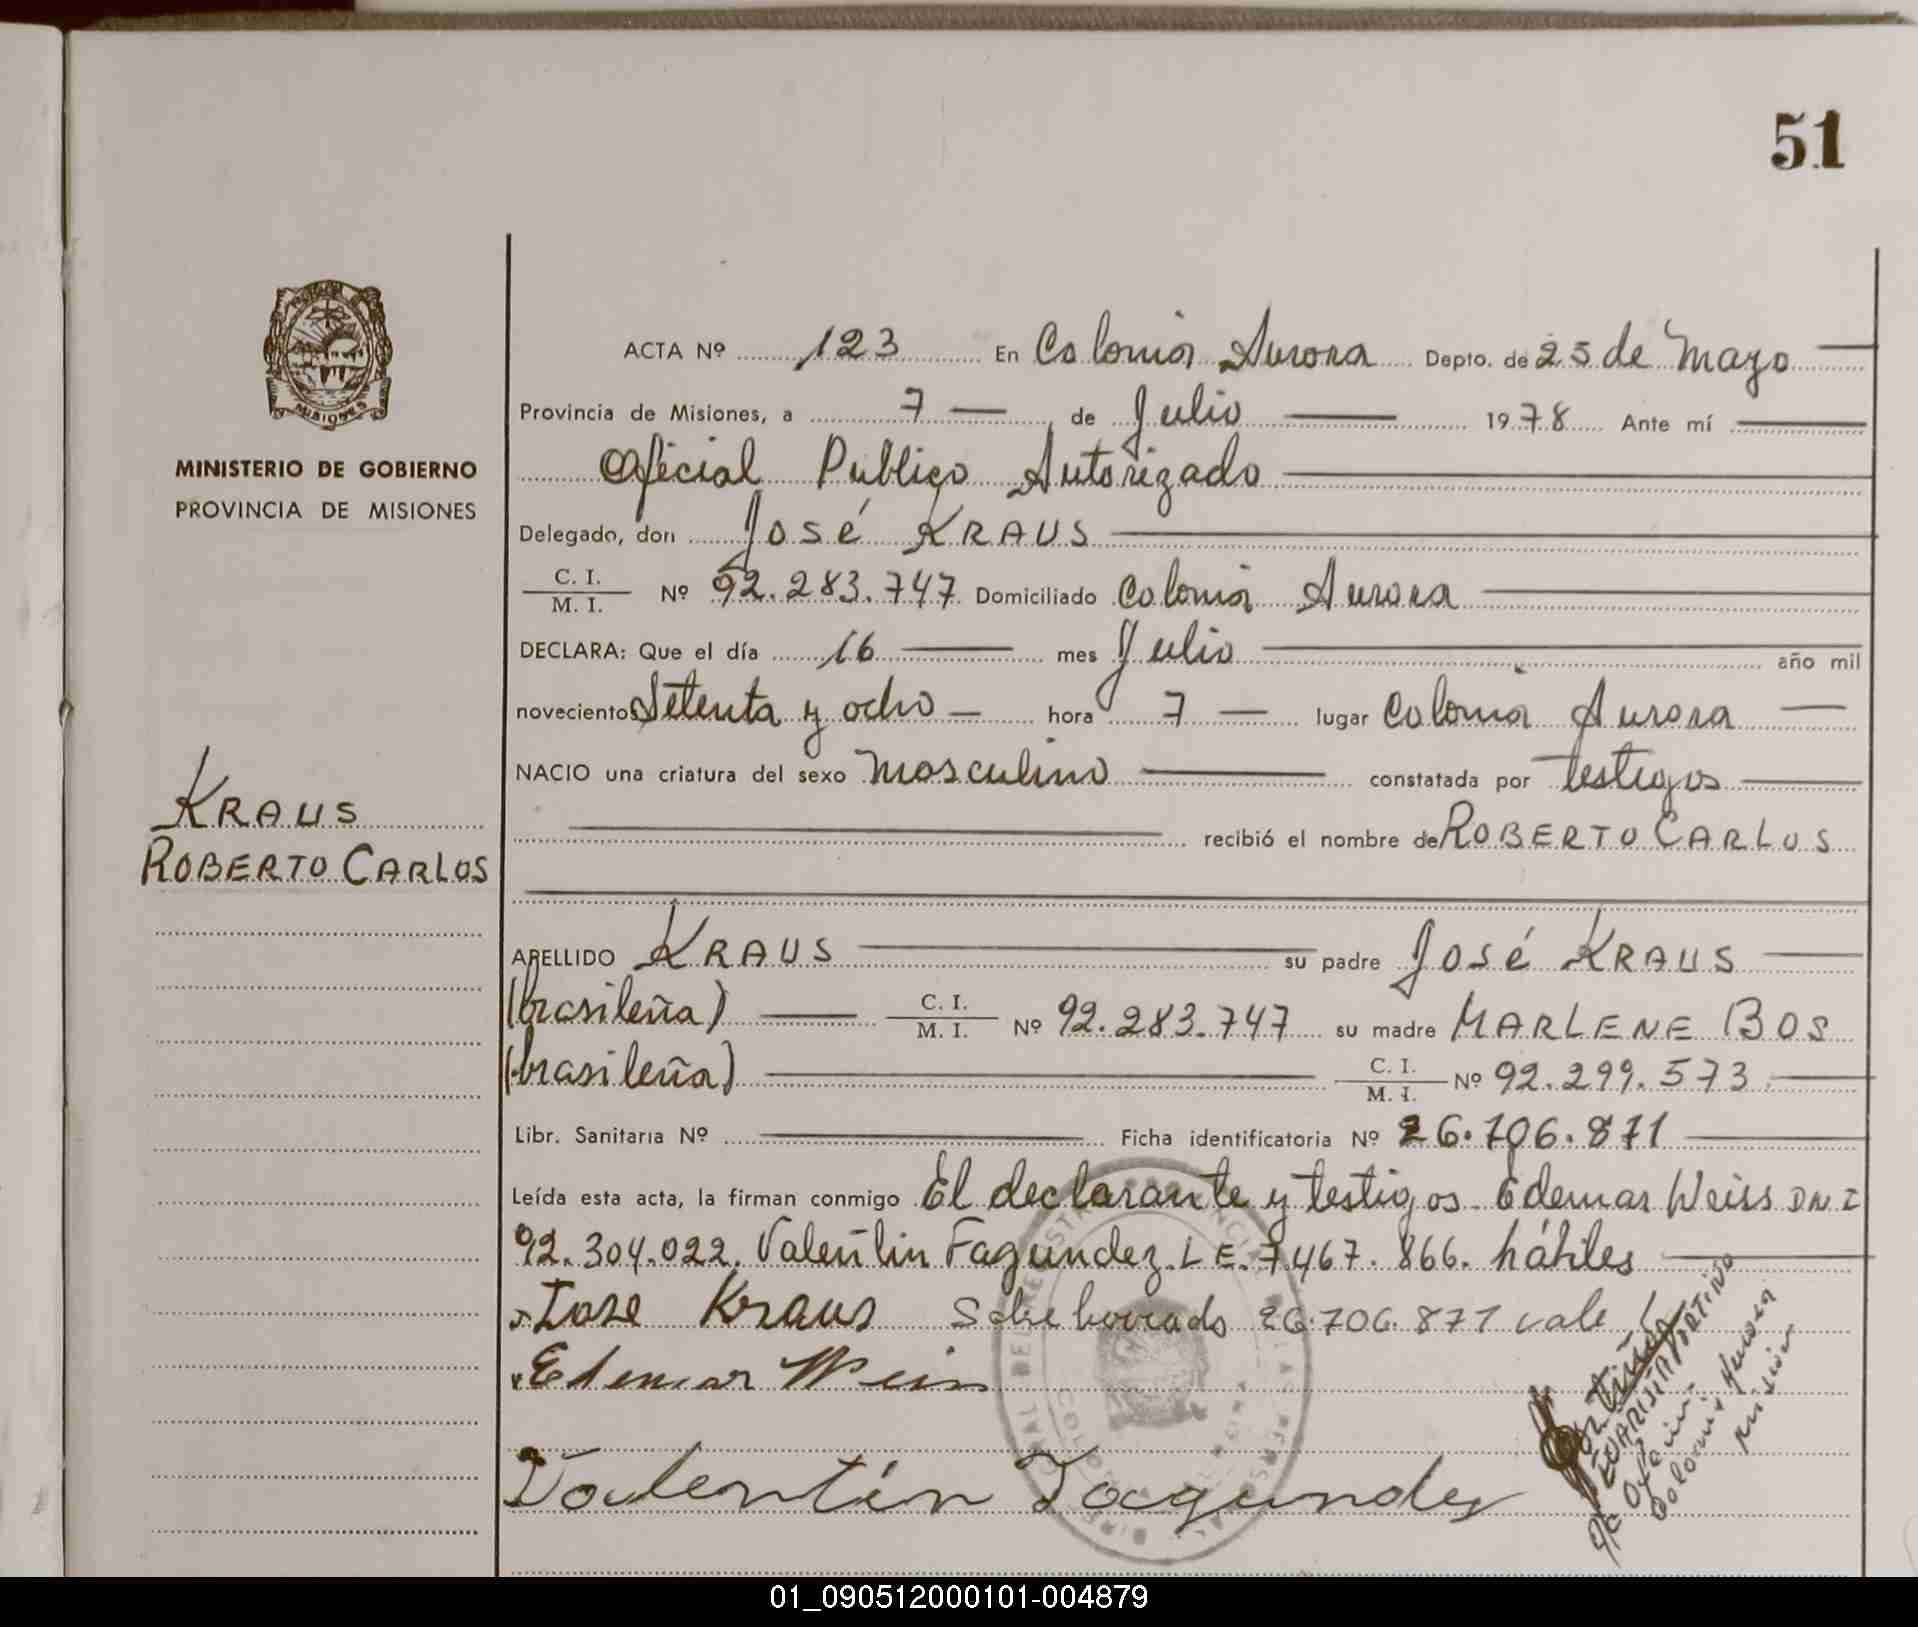 51
MISIONES
MINISTERIO DE GOBIERNO
PROVINCIA DE MISIONES
KRAUS
ROBERTO CARLOS
ACTA Nº 123 En Colonia Aurora Depto. de 25 de Mayo
Provincia de Misiones, a 7 — de Julio — 1978 Ante mí —
Oficial Publico Autorizado —
Delegado, don José KRAUS —
C. I.
M. I. Nº 92.283.747 Domiciliado Colonia Aurora —
DECLARA: Que el día 16 — mes Julio — año mil
novecientos Setenta y ocho — hora 7 — lugar Colonia Aurora —
NACIO una criatura del sexo masculino — constatada por testigos —
— recibió el nombre de ROBERTO CARLOS
APELLIDO KRAUS — su padre José KRAUS —
(brasileña) — C. I.
M. I. Nº 92.283.747 su madre MARLENE BOS
(brasileña) — C. I.
M. I. Nº 92.299.573 —
Libr. Sanitaria Nº — Ficha identificatoria Nº 26.706.871 —
Leída esta acta, la firman conmigo El declarante y testigos. Edemar Weiss DNI
92.304.022. Valentin Fagundez. LE. 7.467.866. hábiles —
Jose Kraus Sobre borrado 26.706.871 vale
Edemar Weiss
Valentín Fagundez
Colonia Aurora
Misiones
01_090512000101-004879